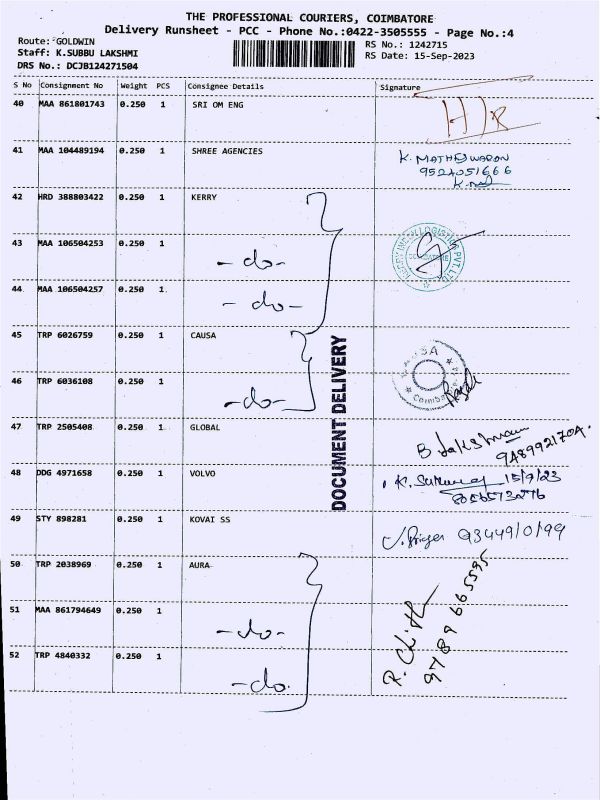 THE PROFESSIONAL COURIERS, COIMBATORE
Delivery Runsheet - PCC - Phone No.:0422-3505555 - Page No.:4
Route: GOLDWIN
RS No.: 1242715
Staff: K.SUBBU LAKSHMI
RS Date: 15-Sep-2023
DRS No.: DCJB124271504
S No Consignment No Weight PCS Consignee Details Signature
40 MAA 861801743 0.250 1 SRI OM ENG
41 MAA 104489194 0.250 1 SHREE AGENCIES
K. MATHESWARAN
9524051666
42 HRD 388803422 0.250 1 KERRY
43 MAA 106504253 0.250 1 -do-
44 MAA 106504257 0.250 1 -do-
45 TRP 6026759 0.250 1 CAUSA
46 TRP 6036108 0.250 1 -do-
47 TRP 2505408 0.250 1 GLOBAL
B Lakshman
48 DDG 4971658 0.250 1 VOLVO
15/9/23
8056573276
49 STY 898281 0.250 1 KOVAI SS
50 TRP 2038969 0.250 1 AURA
51 MAA 861794649 0.250 1 -do-
52 TRP 4840332 0.250 1 -do-
9789665595
DOCUMENT DELIVERY